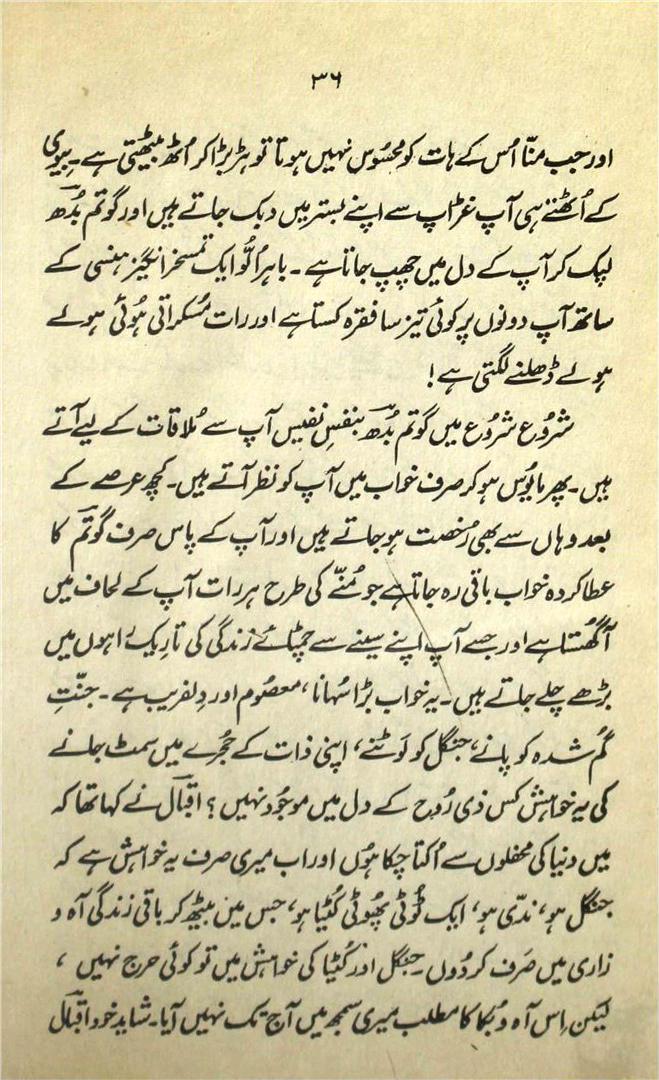 ۳۶
اور جب منّا اُس کے ہات کو محسُوس نہیں ہوتا تو ہڑبڑا کر اُٹھ بیٹھتی ہے۔ بیوی
کے اُٹھتے ہی آپ غڑاپ سے اپنے بستر میں دبک جاتے ہیں اور گوتم بُدھ
لپک کر آپ کے دل میں چھپ جاتا ہے۔ باہر اُلّو ایک تمسخر انگیز ہنسی کے
ساتھ آپ دونوں پر کوئی تیز سا فقرہ کستا ہے اور رات مُسکراتی ہُوئی ہولے
ہولے ڈھلنے لگتی ہے!
شرُوع شرُوع میں گوتم بُدھ بنفسِ نفیس آپ سے مُلاقات کے لیے آتے
ہیں۔ پھر مایُوس ہو کر صرف خواب میں آپ کو نظر آتے ہیں۔ کچھ عرصے کے
بعد وہاں سے بھی رُخصت ہو جاتے ہیں اور آپ کے پاس صرف گوتم کا
عطا کردہ خواب باقی رہ جاتا ہے جو مُنّے کی طرح ہر رات آپ کے لحاف میں
آ گُھستا ہے اور جسے آپ اپنے سینے سے چمٹائے زندگی کی تاریک راہوں میں
بڑھے چلے جاتے ہیں۔ یہ خواب بڑا سُہانا، معصُوم اور دِلفریب ہے۔ جنّتِ
گُم شدہ کو پانے، جنگل کو لَوٹنے، اپنی ذات کے حُجرے میں سمٹ جانے
کی یہ خواہش کس ذی رُوح کے دل میں موجُود نہیں؟ اقبالؔ نے کہا تھا کہ
میں دنیا کی محفلوں سے اُکتا چکا ہُوں اور اب میری صرف یہ خواہش ہے کہ
جنگل ہو، ندّی ہو، ایک ٹُوٹی پھُوٹی کُٹیا ہو، جس میں بیٹھ کر باقی زندگی آہ و
زاری میں صَرف کر دُوں۔ جنگل اور کُٹیا کی خواہش میں تو کوئی حرج نہیں،
لیکن اِس آہ و بُکا کا مطلب میری سمجھ میں آج تک نہیں آیا۔ شاید خود اقبالؔ